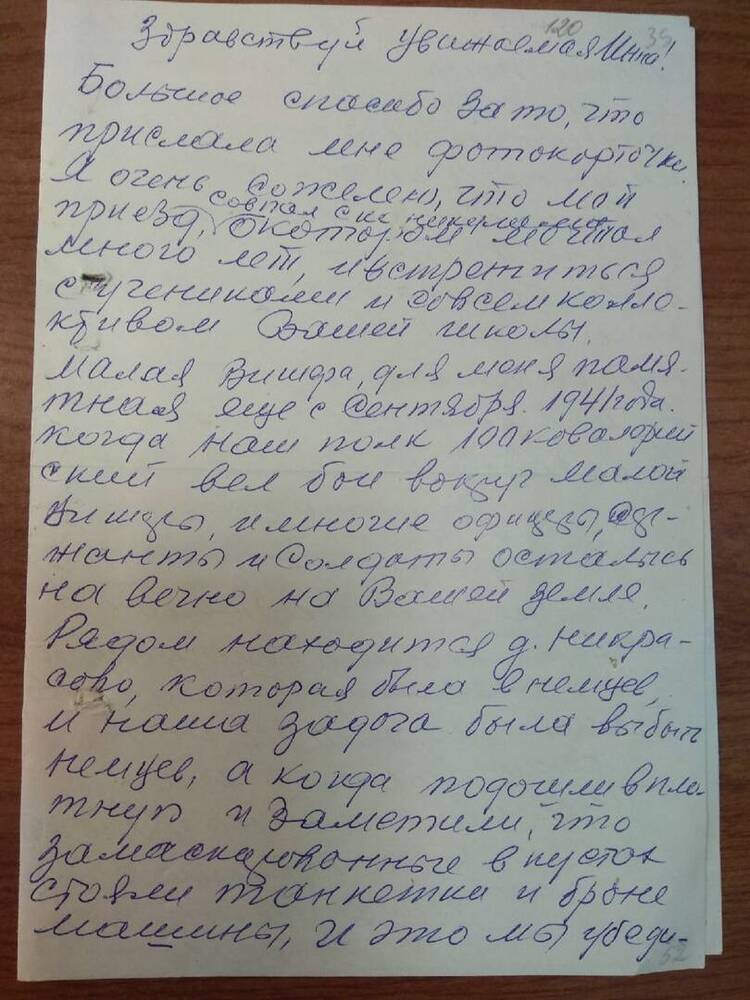 120 39
Здравствуй уважаемая Инна!
Большое спасибо за то, что
прислала мне фотокорточки.
Я очень сожелею, что мой
совпал с
приезд, о котором мечтал
много лет, и встретиться
с учениками и со всем колле-
ктивом Вашей школы.
Малая Вишера, для меня памя-
тная еще с сентября 1941 года.
когда наш полк 100 ковалерий
ский вел бои вокруг Малой
Вишеры, и многие офицеры,
жанты и Солдаты остались
на вечно на Вашей земле.
Рядом находится д. Никра-
сово, которая была в немцев,
и наша задача была выбыть
немцев, а когда подошли впло
тную и заметили, что
замаскированные в кустах
стояли танкетки и броне
машины, и это мы убеди-
52